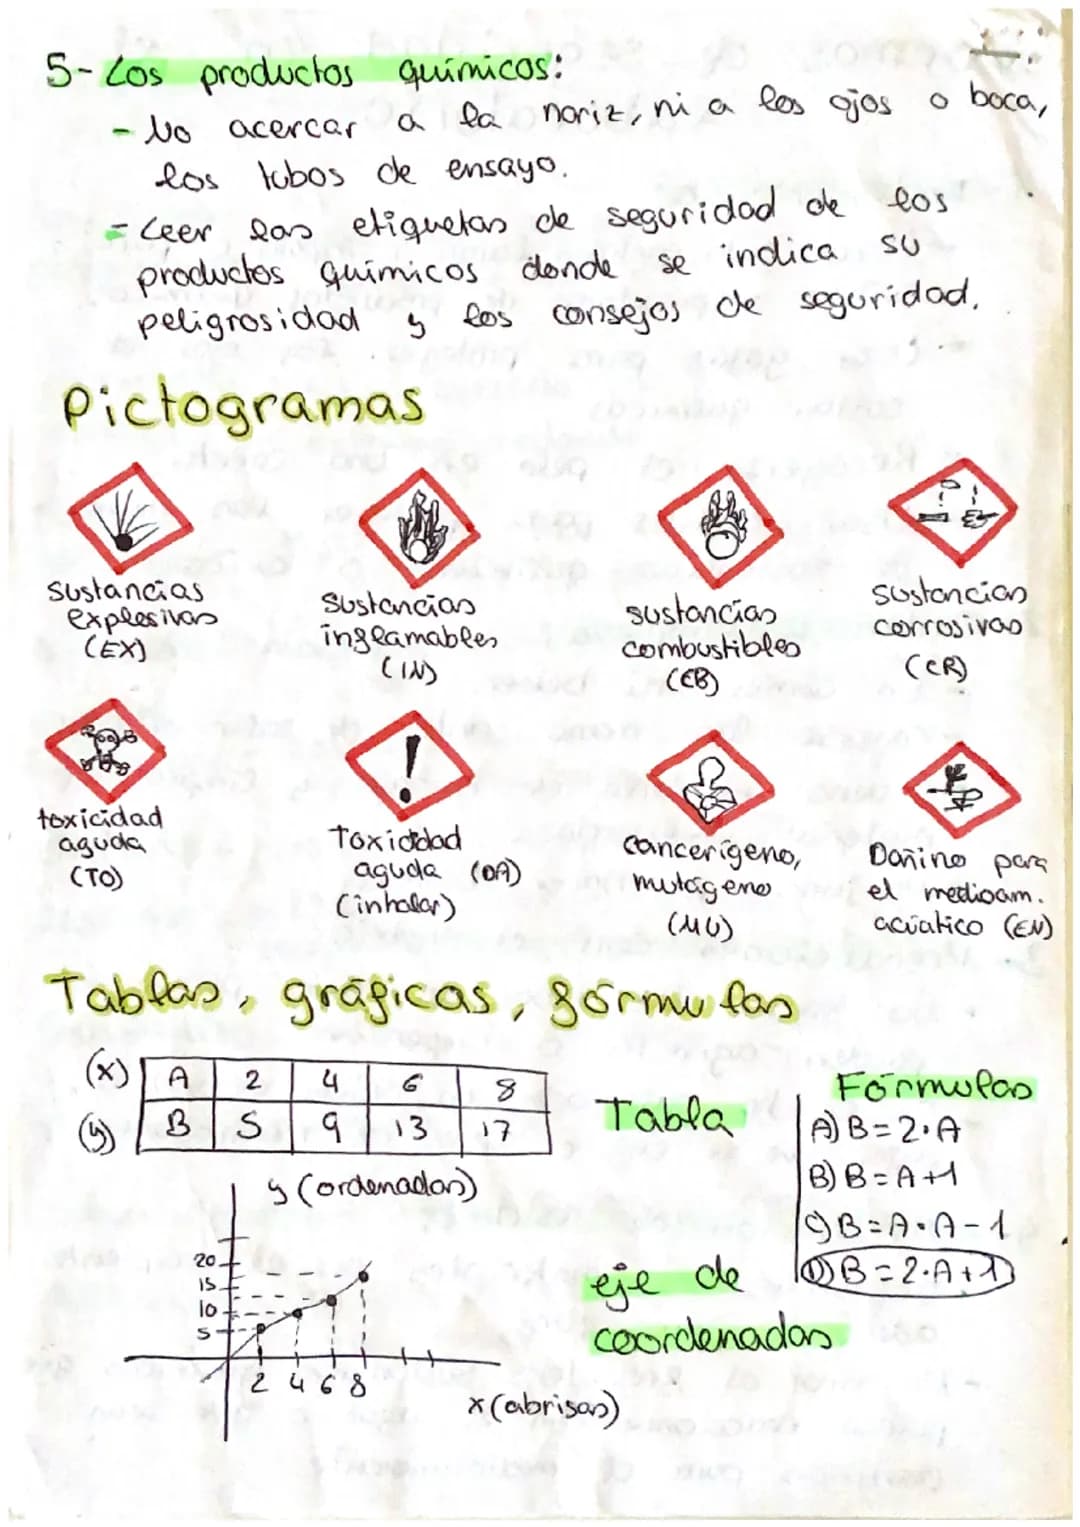 5- Los productos químicos:
- No acercar a la nariz, ni a los ojos o boca,
los tubos de ensayo.
- Leer las etiquetas de seguridad de los
productos químicos donde se indica su
peligrosidad y los consejos de seguridad.
Pictogramas
sustancias
explosivas
(EX)
sustancias
inflamables
(IN)
sustancias
combustibles
(CB)
sustancias
corrosivas
(CR)
toxicidad
aguda
(TO)
!
Toxicidad
aguda (DA)
(inhalar)
cancerígeno,
mutágeno
(MU)
Dañino para
el medioam.
acúatico (EN)
Tablas, gráficas, fórmulas
(x) A 2 4 6 8
(y) B 5 9 13 17
Tabla
Fórmulas
A) B=2·A
B) B=A+1
C) B=A·A-1
D) B=2·A+1
y (ordenadas)
20
15
10
5
2 4 6 8
x (abrisas)
eje de
coordenadas